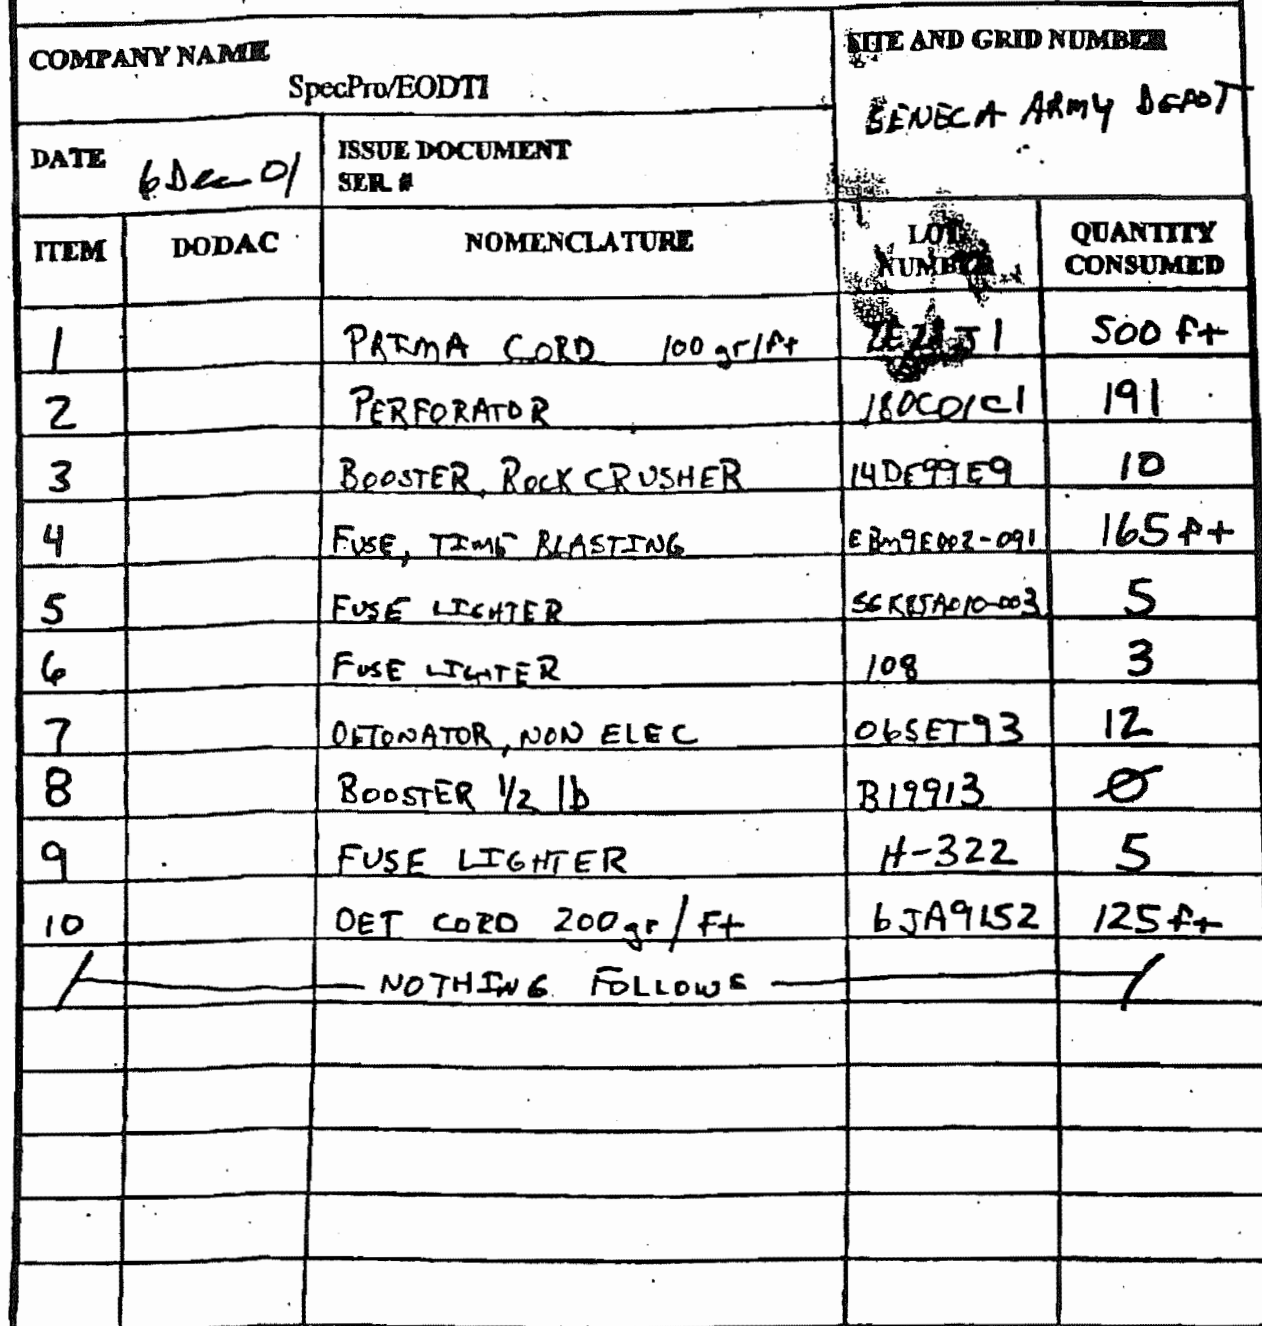 COMPANY NAME
SpecPro/EODTI
SITE AND GRID NUMBER
SENECA ARMY DEPOT
DATE 6 Dec 01
ISSUE DOCUMENT
SER. #
ITEM DODAC NOMENCLATURE LOT NUMBER QUANTITY CONSUMED
1 PRIMA CORD 100 gr/ft 500 ft
2 PERFORATOR 180C01C1 191
3 BOOSTER, ROCK CRUSHER 14DE99E9 10
4 FUSE, TIME BLASTING EBM9E002-091 165 ft
5 FUSE LIGHTER 5
6 FUSE LIGHTER 108 3
7 DETONATOR, NON ELEC 06SET93 12
8 BOOSTER 1/2 lb B19913 Ø
9 FUSE LIGHTER H-322 5
10 DET CORD 200 gr/ft 6JA91S2 125 ft
NOTHING FOLLOWS